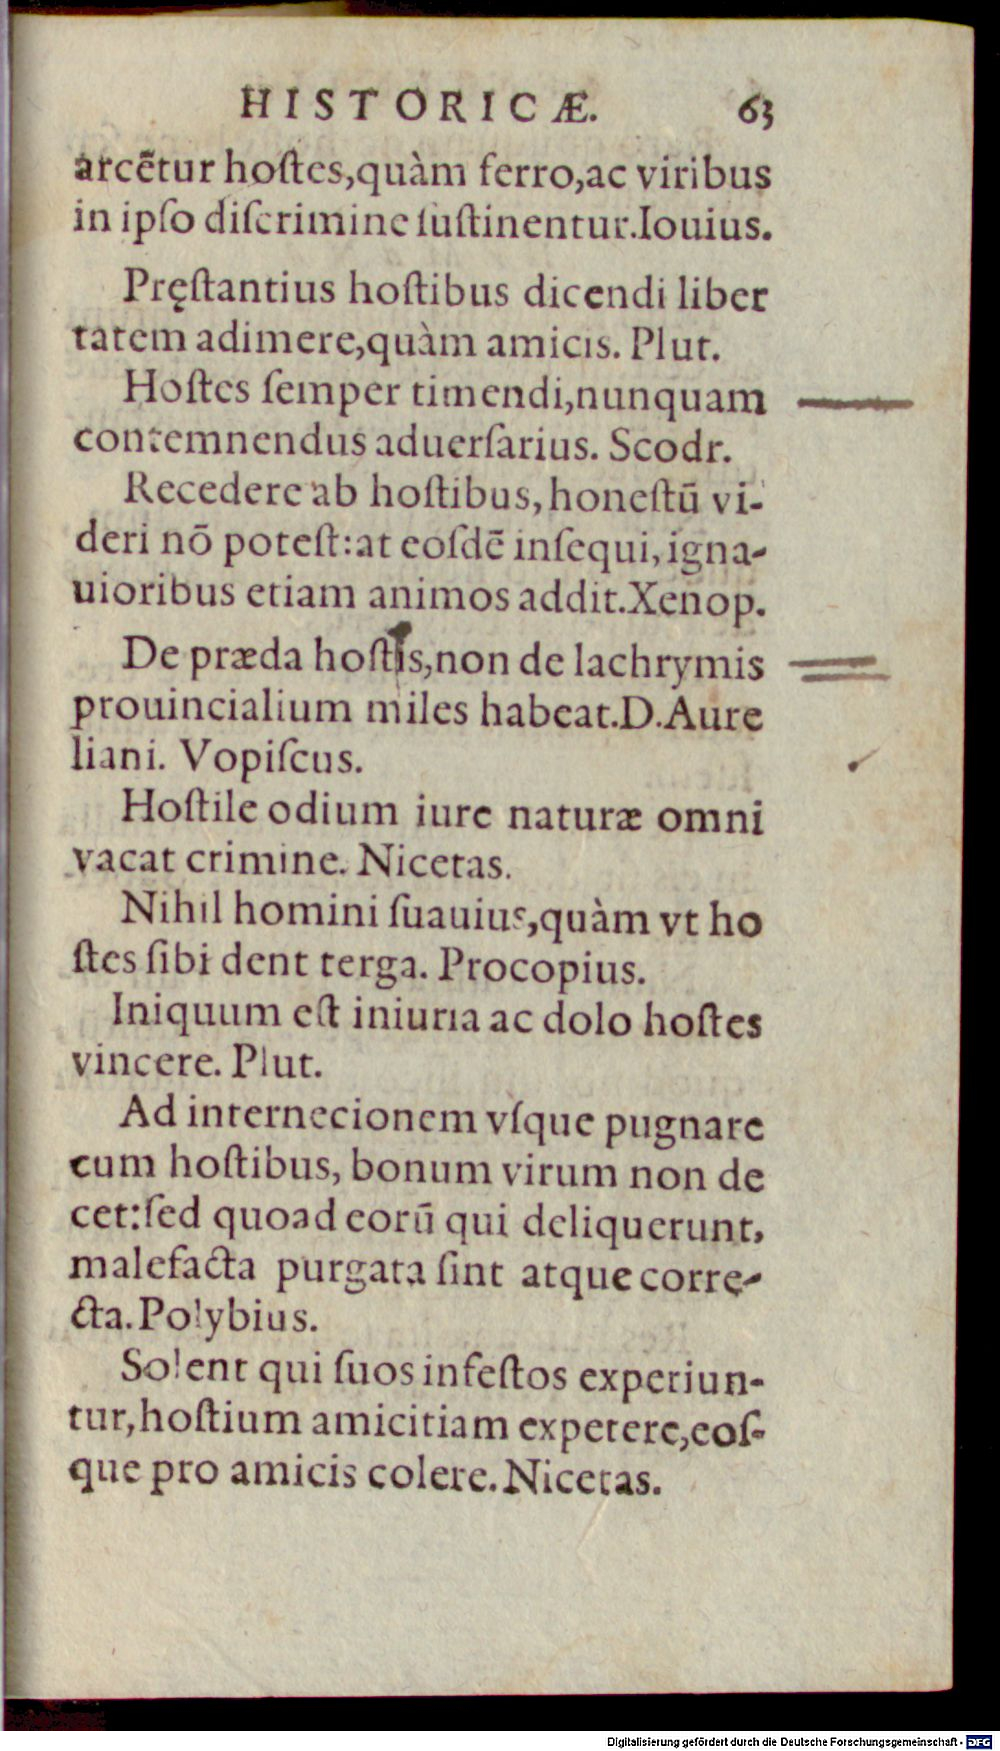 HISTORICÆ. 63
arcẽtur hoſtes,quàm ferro,ac viribus
in ipſo diſcrimine ſuſtinentur.Iouius.
Pręſtantius hoſtibus dicendi liber
tatem adimere,quàm amicis. Plut.
Hoſtes ſemper timendi,nunquam
contemnendus aduerſarius. Scodr.
Recedere ab hoſtibus, honeſtũ vi-
deri nõ poteſt:at eoſdẽ inſequi, igna-
uioribus etiam animos addit.Xenop.
De præda hoſtis,non de lachrymis
prouincialium miles habeat.D.Aure
liani. Vopiſcus.
Hoſtile odium iure naturæ omni
vacat crimine. Nicetas.
Nihil homini ſuauius,quàm vt ho
ſtes ſibi dent terga. Procopius.
Iniquum eſt iniuria ac dolo hoſtes
vincere. Plut.
Ad internecionem vſque pugnare
cum hoſtibus, bonum virum non de
cet:ſed quoad eorũ qui deliquerunt,
malefacta purgata ſint atque corre-
cta. Polybius.
Solent qui ſuos infeſtos experiun-
tur,hoſtium amicitiam expetere,eoſ-
que pro amicis colere. Nicetas.
Digitalisierung gefördert durch die Deutsche Forschungsgemeinschaft - DFG